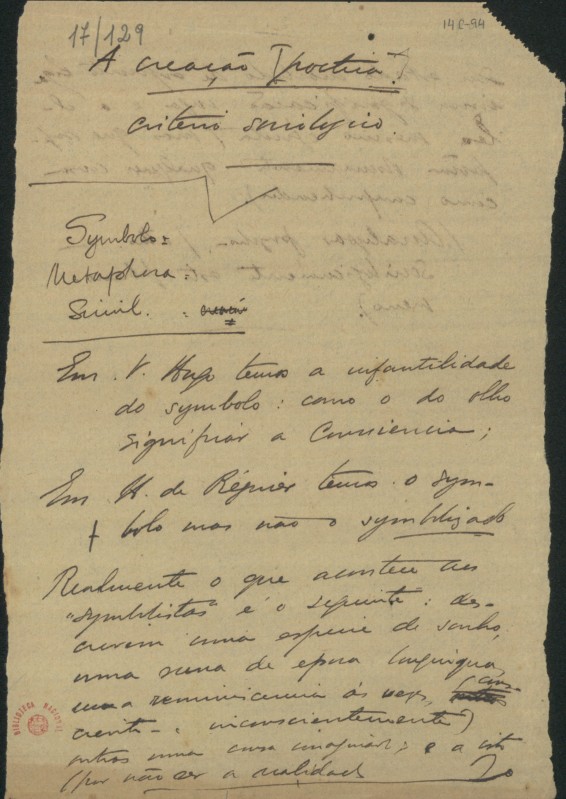 17/129
14C-94
A creação [poetica].
criterio sociologico.
Symbolo:
Metaphora:
Simil. :
Em V. Hugo temos a infantilidade
do symbolo: como o do olho
significar a Consciencia;
Em H. de Régnier temos o sym-
bolo mas não o symbolizado
Realmente o que acontece aos
"symbolistas" é o seguinte: des-
crevem uma especie de sonho,
uma scena de epoca longinqua,
uma reminiscencia ás vezes, (cons-
ciente - inconscientemente)
outros uma cousa imaginaria; e a isto
(por não ser a realidade
BIBLIOTECA NACIONAL